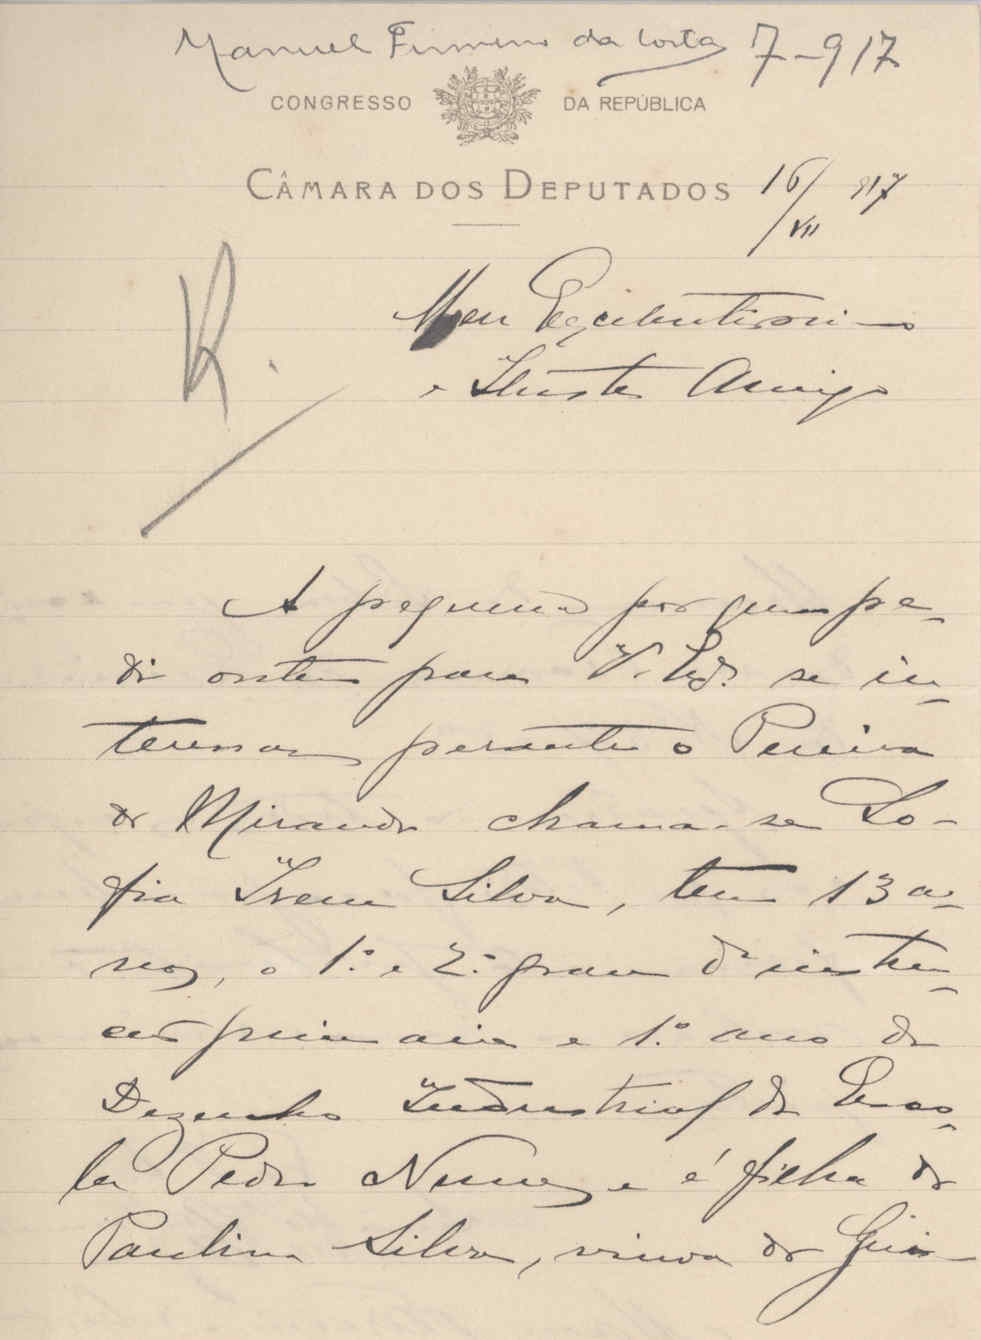 Manuel Firmino da Costa 7-917
CONGRESSO DA REPÚBLICA
CÂMARA DOS DEPUTADOS 16/VII 917
R.
Meu Excelentissimo
e Ilustre Amigo
A pequena por quem pe-
di ontem para V. Exª. se in-
teressar perante o Pereira
de Miranda chama-se So-
fia Irene Silva, tem 13 a-
nos, o 1.º e 2.º grau d'instru-
ção primaria e 1.º ano de
Dezenho Industrial da Esco-
la Pedro Nunes e é filha de
Paulina Silva, viuva de